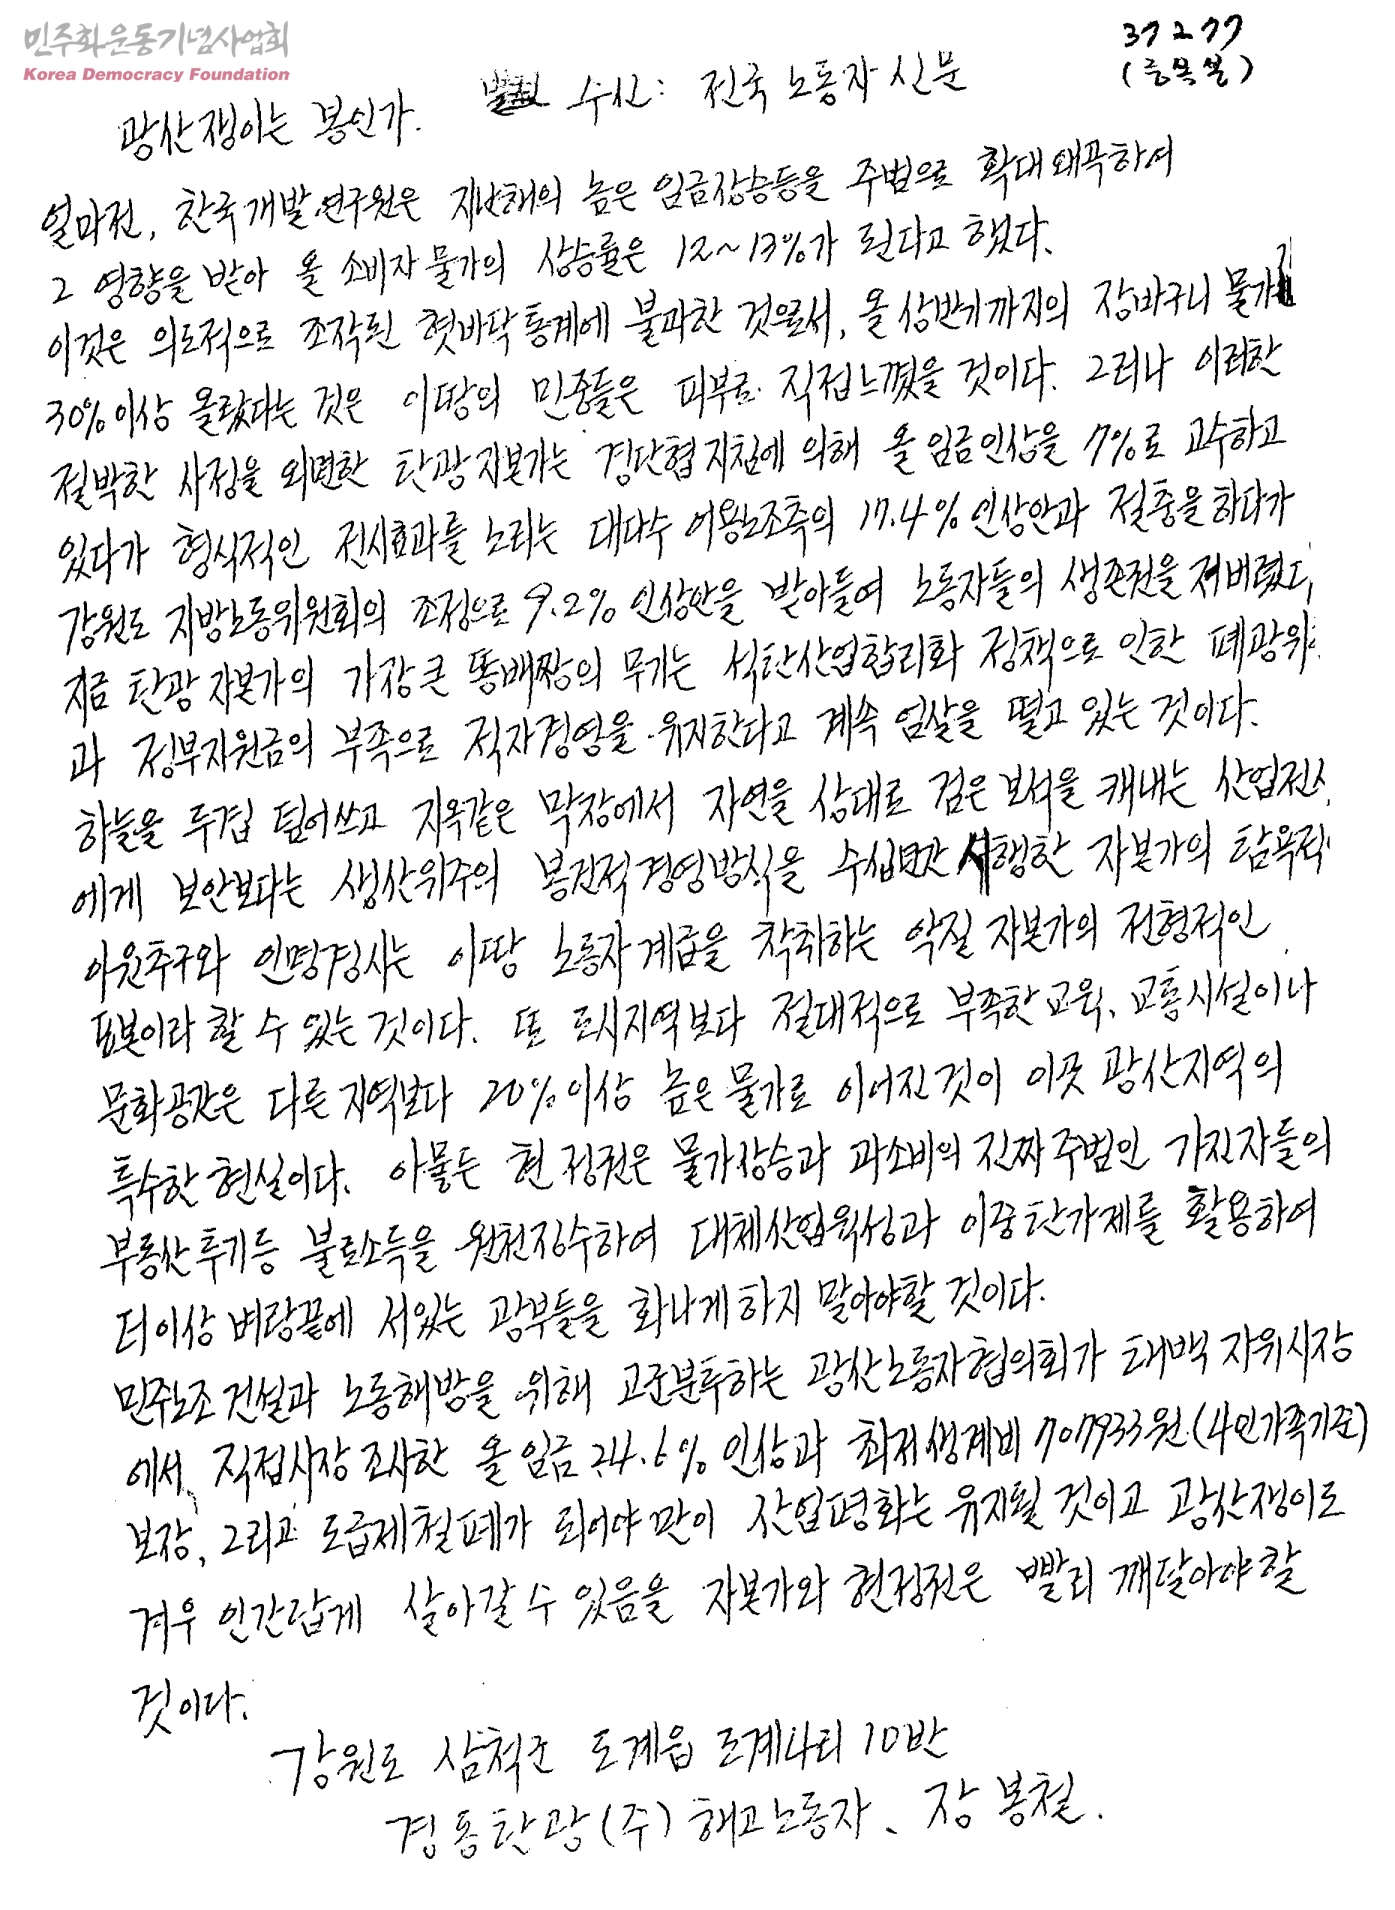 민주화운동기념사업회
Korea Democracy Foundation
37277
수신: 전국노동자신문
광산쟁이는 봉인가.
얼마전, 한국개발연구원은 지난해의 높은 임금상승등을 주범으로 확대왜곡하여
그 영향을 받아 올 소비자물가의 상승률은 12~13%가 된다고 했다.
이것은 의도적으로 조작된 혓바닥통계에 불과한 것으로서, 올 상반기까지의 장바구니 물가
30%이상 올랐다는 것은 이땅의 민중들은 피부로 직접느꼈을 것이다. 그러나 이러한
절박한 사정을 외면한 탄광자본가는 경단협지침에 의해 올 임금인상을 7%로 고수하고
있다가 형식적인 전시효과를 노리는 대다수 어용노조측의 17.4% 인상안과 절충을하다가
강원도 지방노동위원회의 조정으로 9.2% 인상안을 받아들여 노동자들의 생존권을 져버렸다
지금 탄광자본가의 가장큰 똥배짱의 무기는 석탄산업합리화 정책으로 인한 폐광위기
과 정부지원금의 부족으로 적자경영을 유지한다고 계속 엄살을 떨고 있는 것이다.
하늘을 두겹 덮어쓰고 지옥같은 막장에서 자연을 상대로 검은 보석을 캐내는 산업전사
에게 보안보다는 생산위주의 봉건적경영방식을 수십년간 시행한 자본가의 탐욕적
이윤추구와 인명경시는 이땅 노동자계급을 착취하는 악질 자본가의 전형적인
표본이라 할 수 있는 것이다. 또 도시지역보다 절대적으로 부족한 교육, 교통시설이나
문화공간은 다른지역보다 20%이상 높은 물가로 이어진것이 이곳 광산지역의
특수한 현실이다. 아뭏든 현 정권은 물가상승과 과소비의 진짜 주범인 가진자들의
부동산투기등 불로소득을 원천징수하여 대체산업육성과 이중탄가제를 활용하여
더이상 벼랑끝에 서있는 광부들을 화나게하지 말아야할 것이다.
민주노조건설과 노동해방을 위해 고군분투하는 광산노동자협의회가 태백 자위시장
에서 직접시장조사한 올 임금 24.6% 인상과 최저생계비 707933원(4인가족기준)
보장, 그리고 도급제철폐가 되어야만이 산업평화는 유지될 것이고 광산쟁이도
겨우 인간답게 살아갈수 있음을 자본가와 현정권은 빨리 깨달아야할
것이다.
강원도 삼척군 도계읍 도계나티 10반
경동탄광(주) 해고노동자、장봉철.